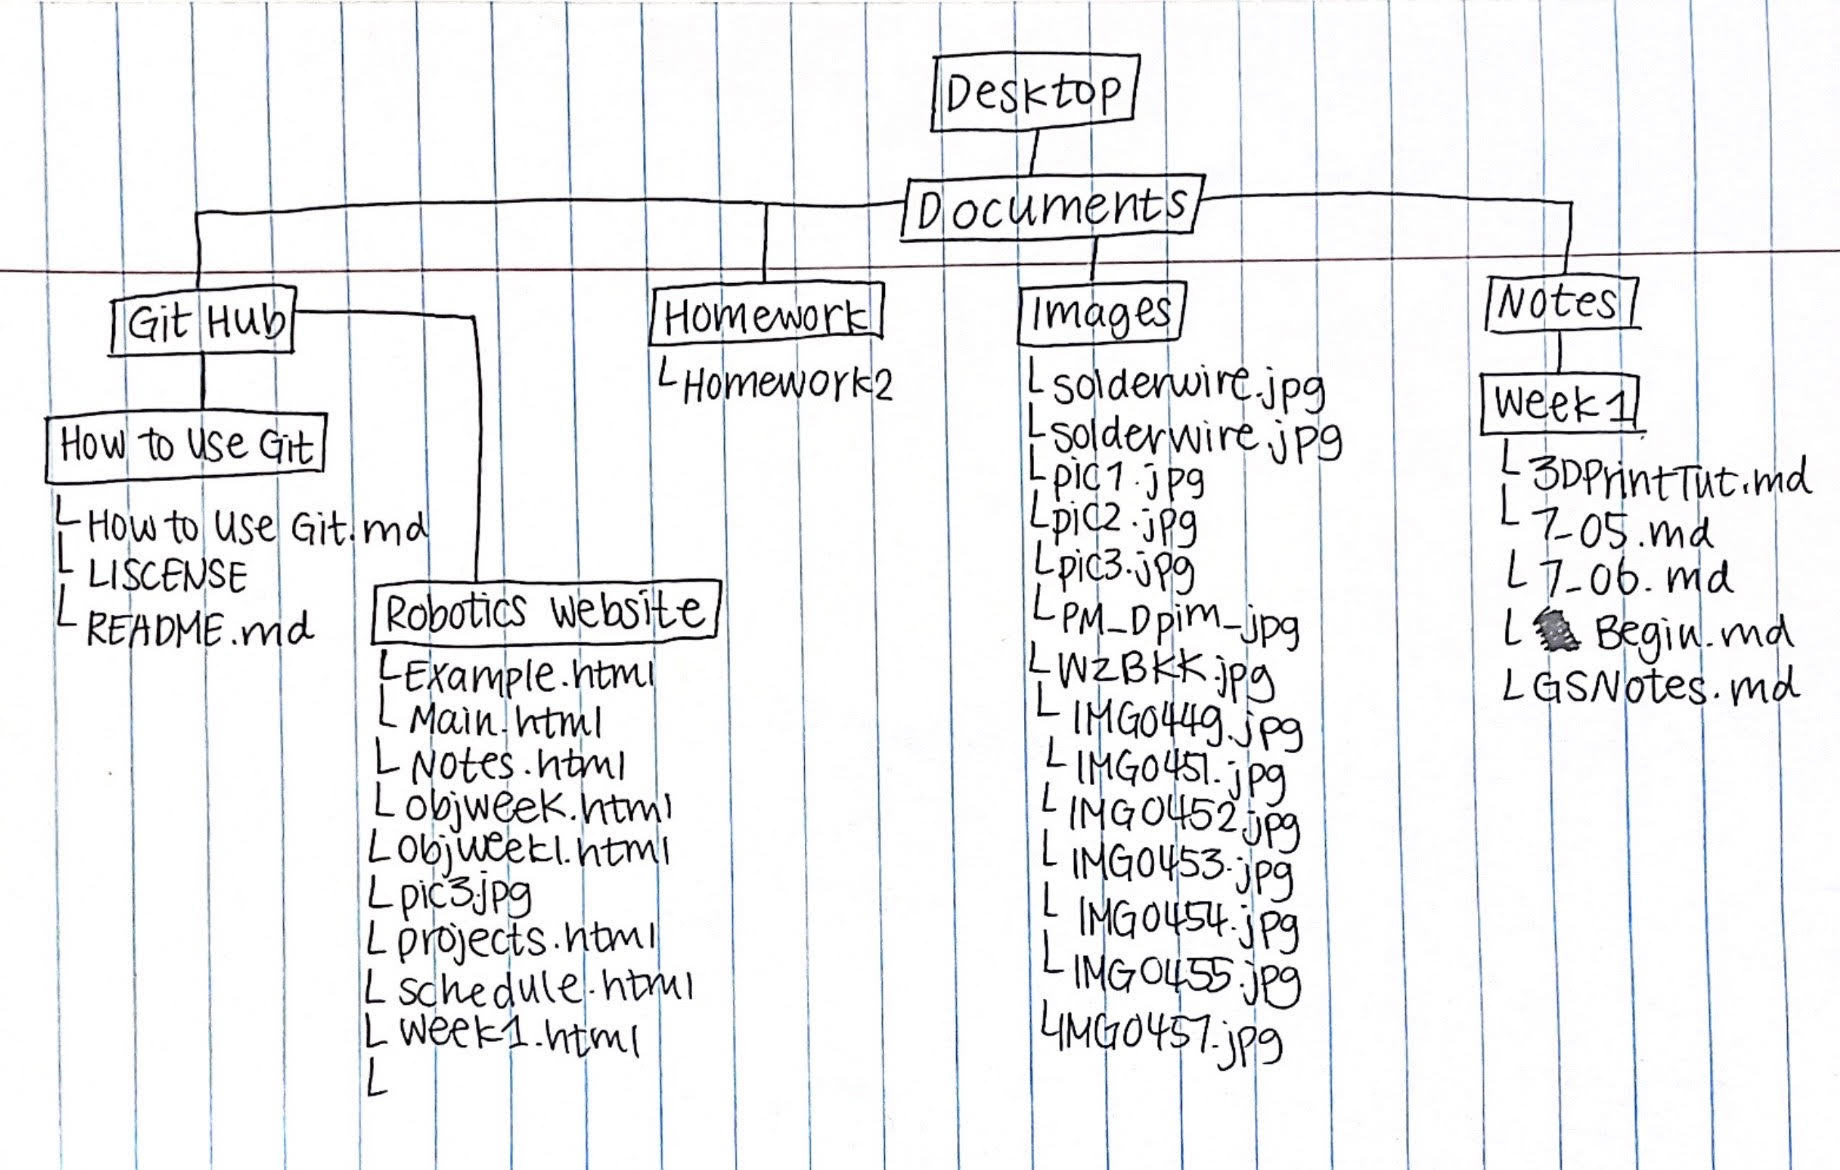 Desktop
Documents
Git Hub
Homework
Images
Notes
How to use Git
How to use Git.md
LISCENSE
README.md
Robotics website
Example.html
Main.html
Notes.html
objweek.html
objweek1.html
pic3.jpg
projects.html
schedule.html
week1.html
Homework2
solderwire.jpg
solderwire.jpg
pic1.jpg
pic2.jpg
pic3.jpg
PM_Dpim_jpg
WZBKK.jpg
IMG0449.jpg
IMG0451.jpg
IMG0452.jpg
IMG0453.jpg
IMG0454.jpg
IMG0455.jpg
IMG0457.jpg
Week1
3DPrintTut.md
7-05.md
7-06.md
Begin.md
GSNotes.md